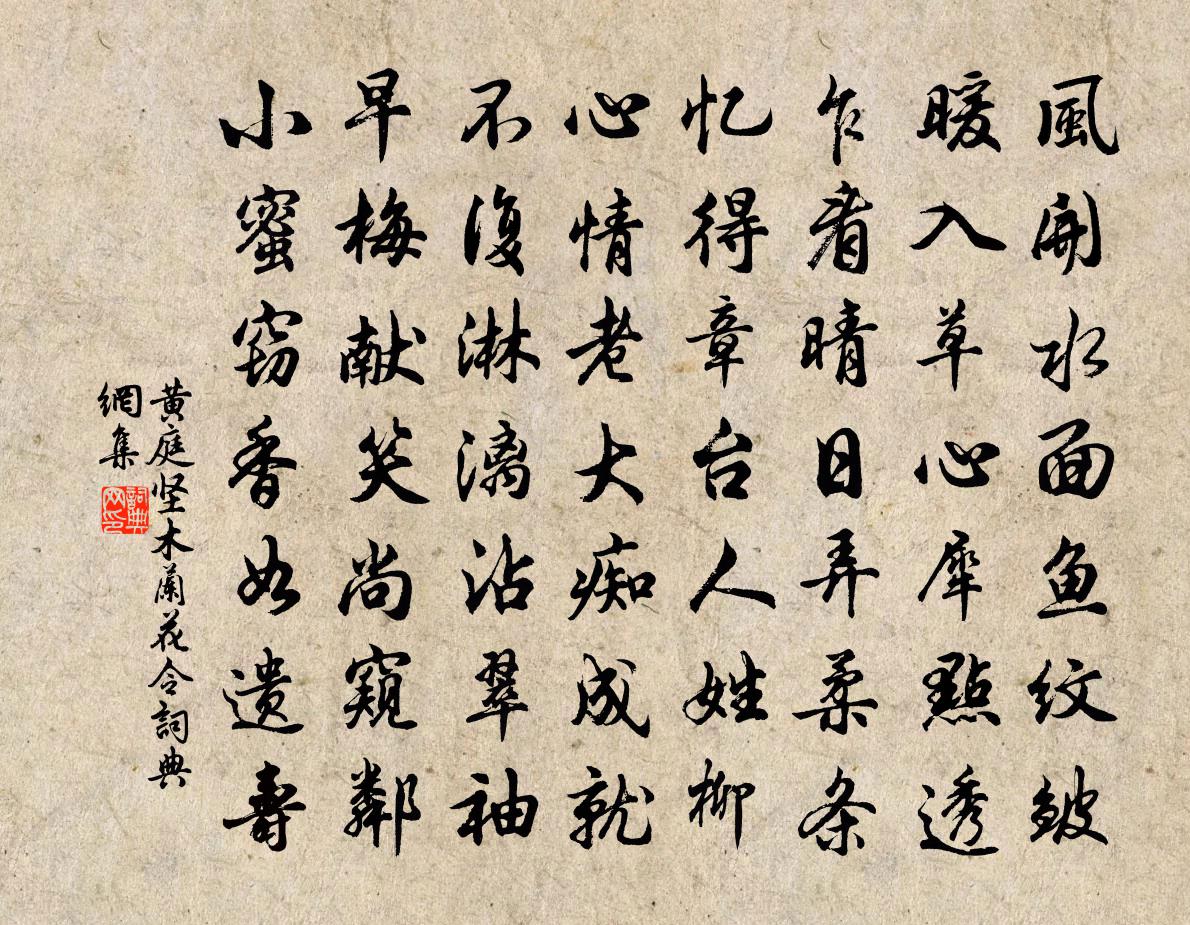 風開水面魚紋皺
暖入草心犀點透
乍看晴日弄柔条
忆得章台人姓柳
心情老大痴成就
不復淋漓沾翠袖
早梅献笑尚窺鄰
小蜜窃香如遗壽
黄庭坚木蘭花令詞典
網集
詞典
网印